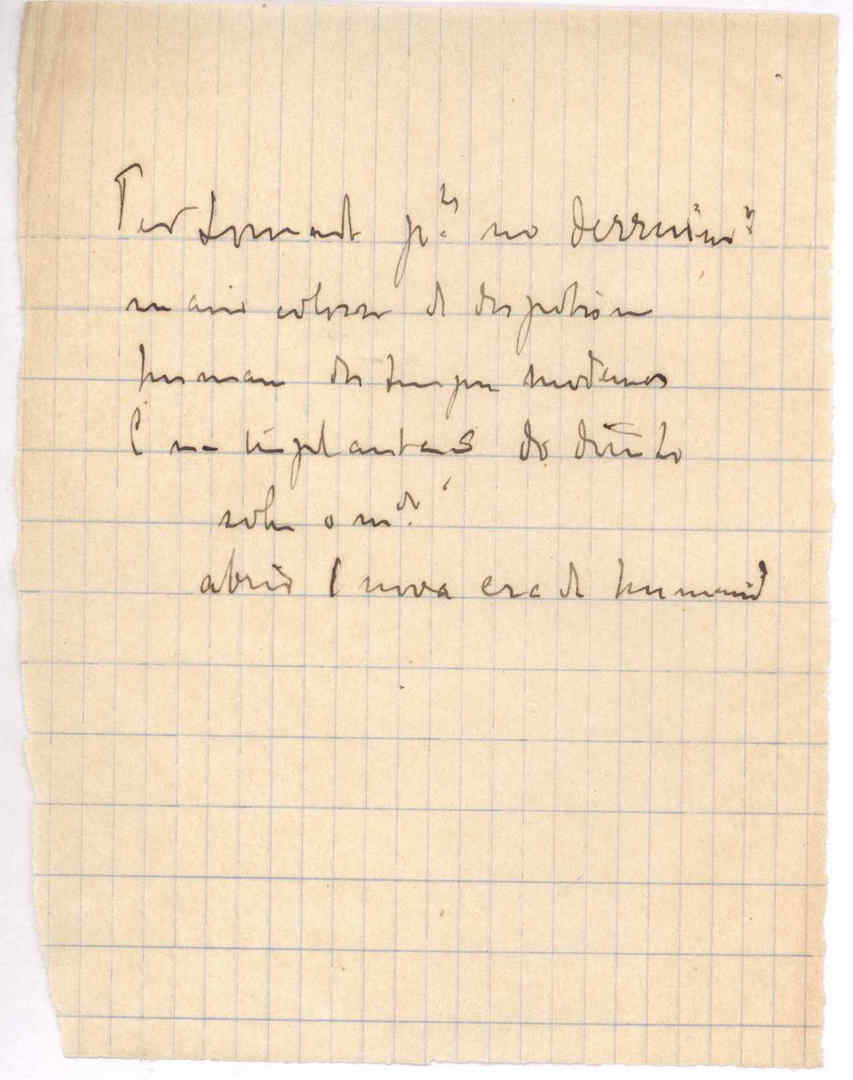 Ter tomado p.te no derruim.to
maior colosso de despotism
human dos tempos modernos
E na implantação do direito
sobre o m.do
abrio I nova era de humanid